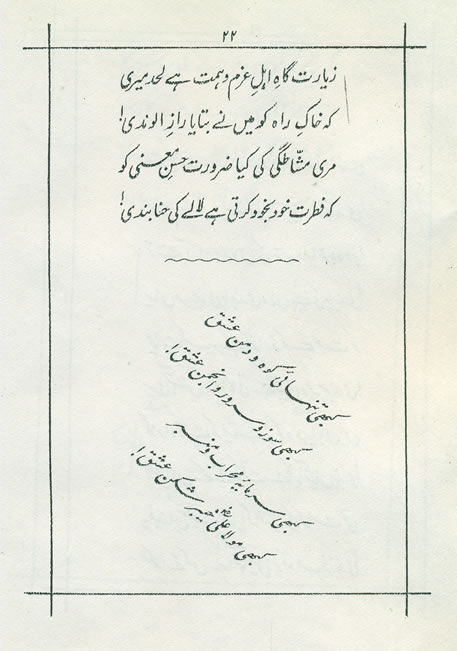 ۲۲
زیارت گاہِ اہلِ عزم و ہمت ہے لحد میری
کہ خاکِ راہ کو میں نے بتایا رازِ الوندی!
مری مشّاطگی کی کیا ضرورت حسنِ معنی کو
کہ فطرت خود بخود کرتی ہے لالے کی حنا بندی!
کبھی تنہائیِ کوہ و دمن عشق
کبھی سوز و سرور و انجمن عشق!
کبھی سرمایۂ محراب و منبر
کبھی مولا علیؓ خیبر شکن عشق!